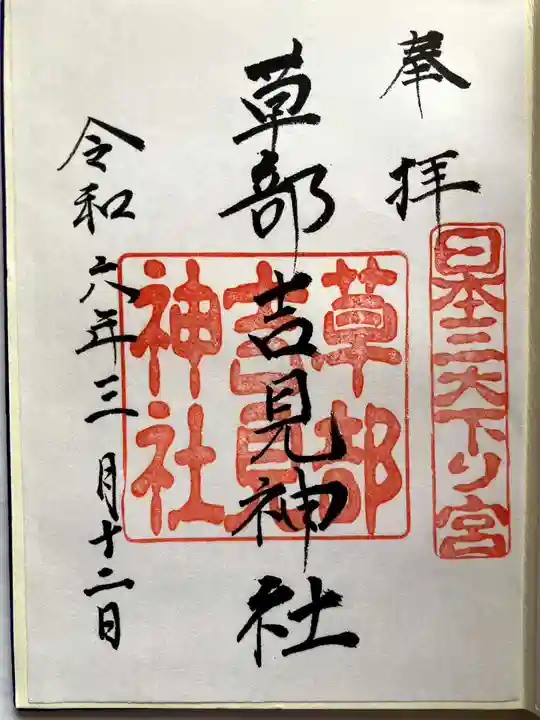 奉拝
日本三大下り宮
草部吉見神社
草部
吉見
神社
令和六年三月十二日